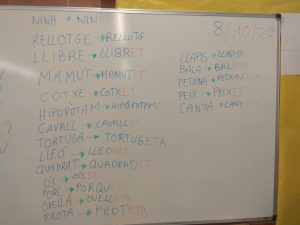 NINA → NIN
RELLOTGE → RELLOTG
LLIBRE → LLIBRET
MAMUT → MAMUTET
COTXE → COTXET
HIPOPOTAM → HIPOPOTAMET
CAVALL → CAVALLET
TORTUGA → TORTUGETA
LLEÓ → LLEONET
QUADRAT → QUADRADET
ÓS → OSET
PORC → PORQUET
OVELLA → OVELLETA
PILOTA → PILOTETA
8/10/20
LLAPIS → LLAPISET
BALA → BALETA
PETXINA → PETXINETA
PEIX → PEIXET
CANYA → CANYETA